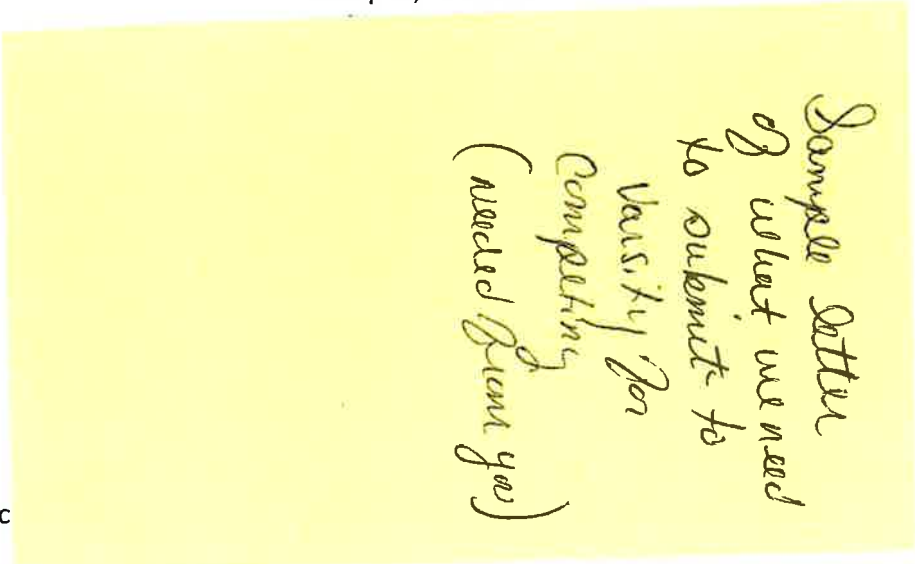 Sample letter
of what we need
to submit to
Varsity for
Competing
(needed from you)
c